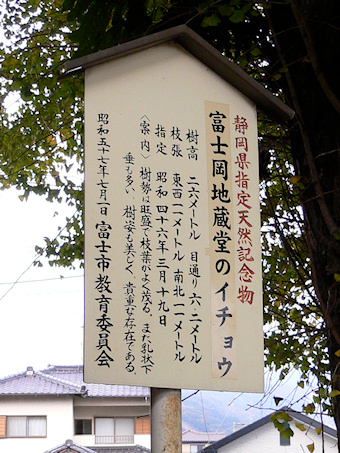 静岡県指定天然記念物
富士岡地蔵堂のイチョウ
樹高 二六メートル 目通り 六・二メートル
枝張 東西 二一メートル 南北 一一メートル
指定 昭和四十六年三月十九日
(案内) 樹勢は旺盛で枝葉がよく茂る、また乳状下
垂も多い 樹姿も美しく、貴重な存在である。
昭和五十七年七月一日 富士市教育委員会